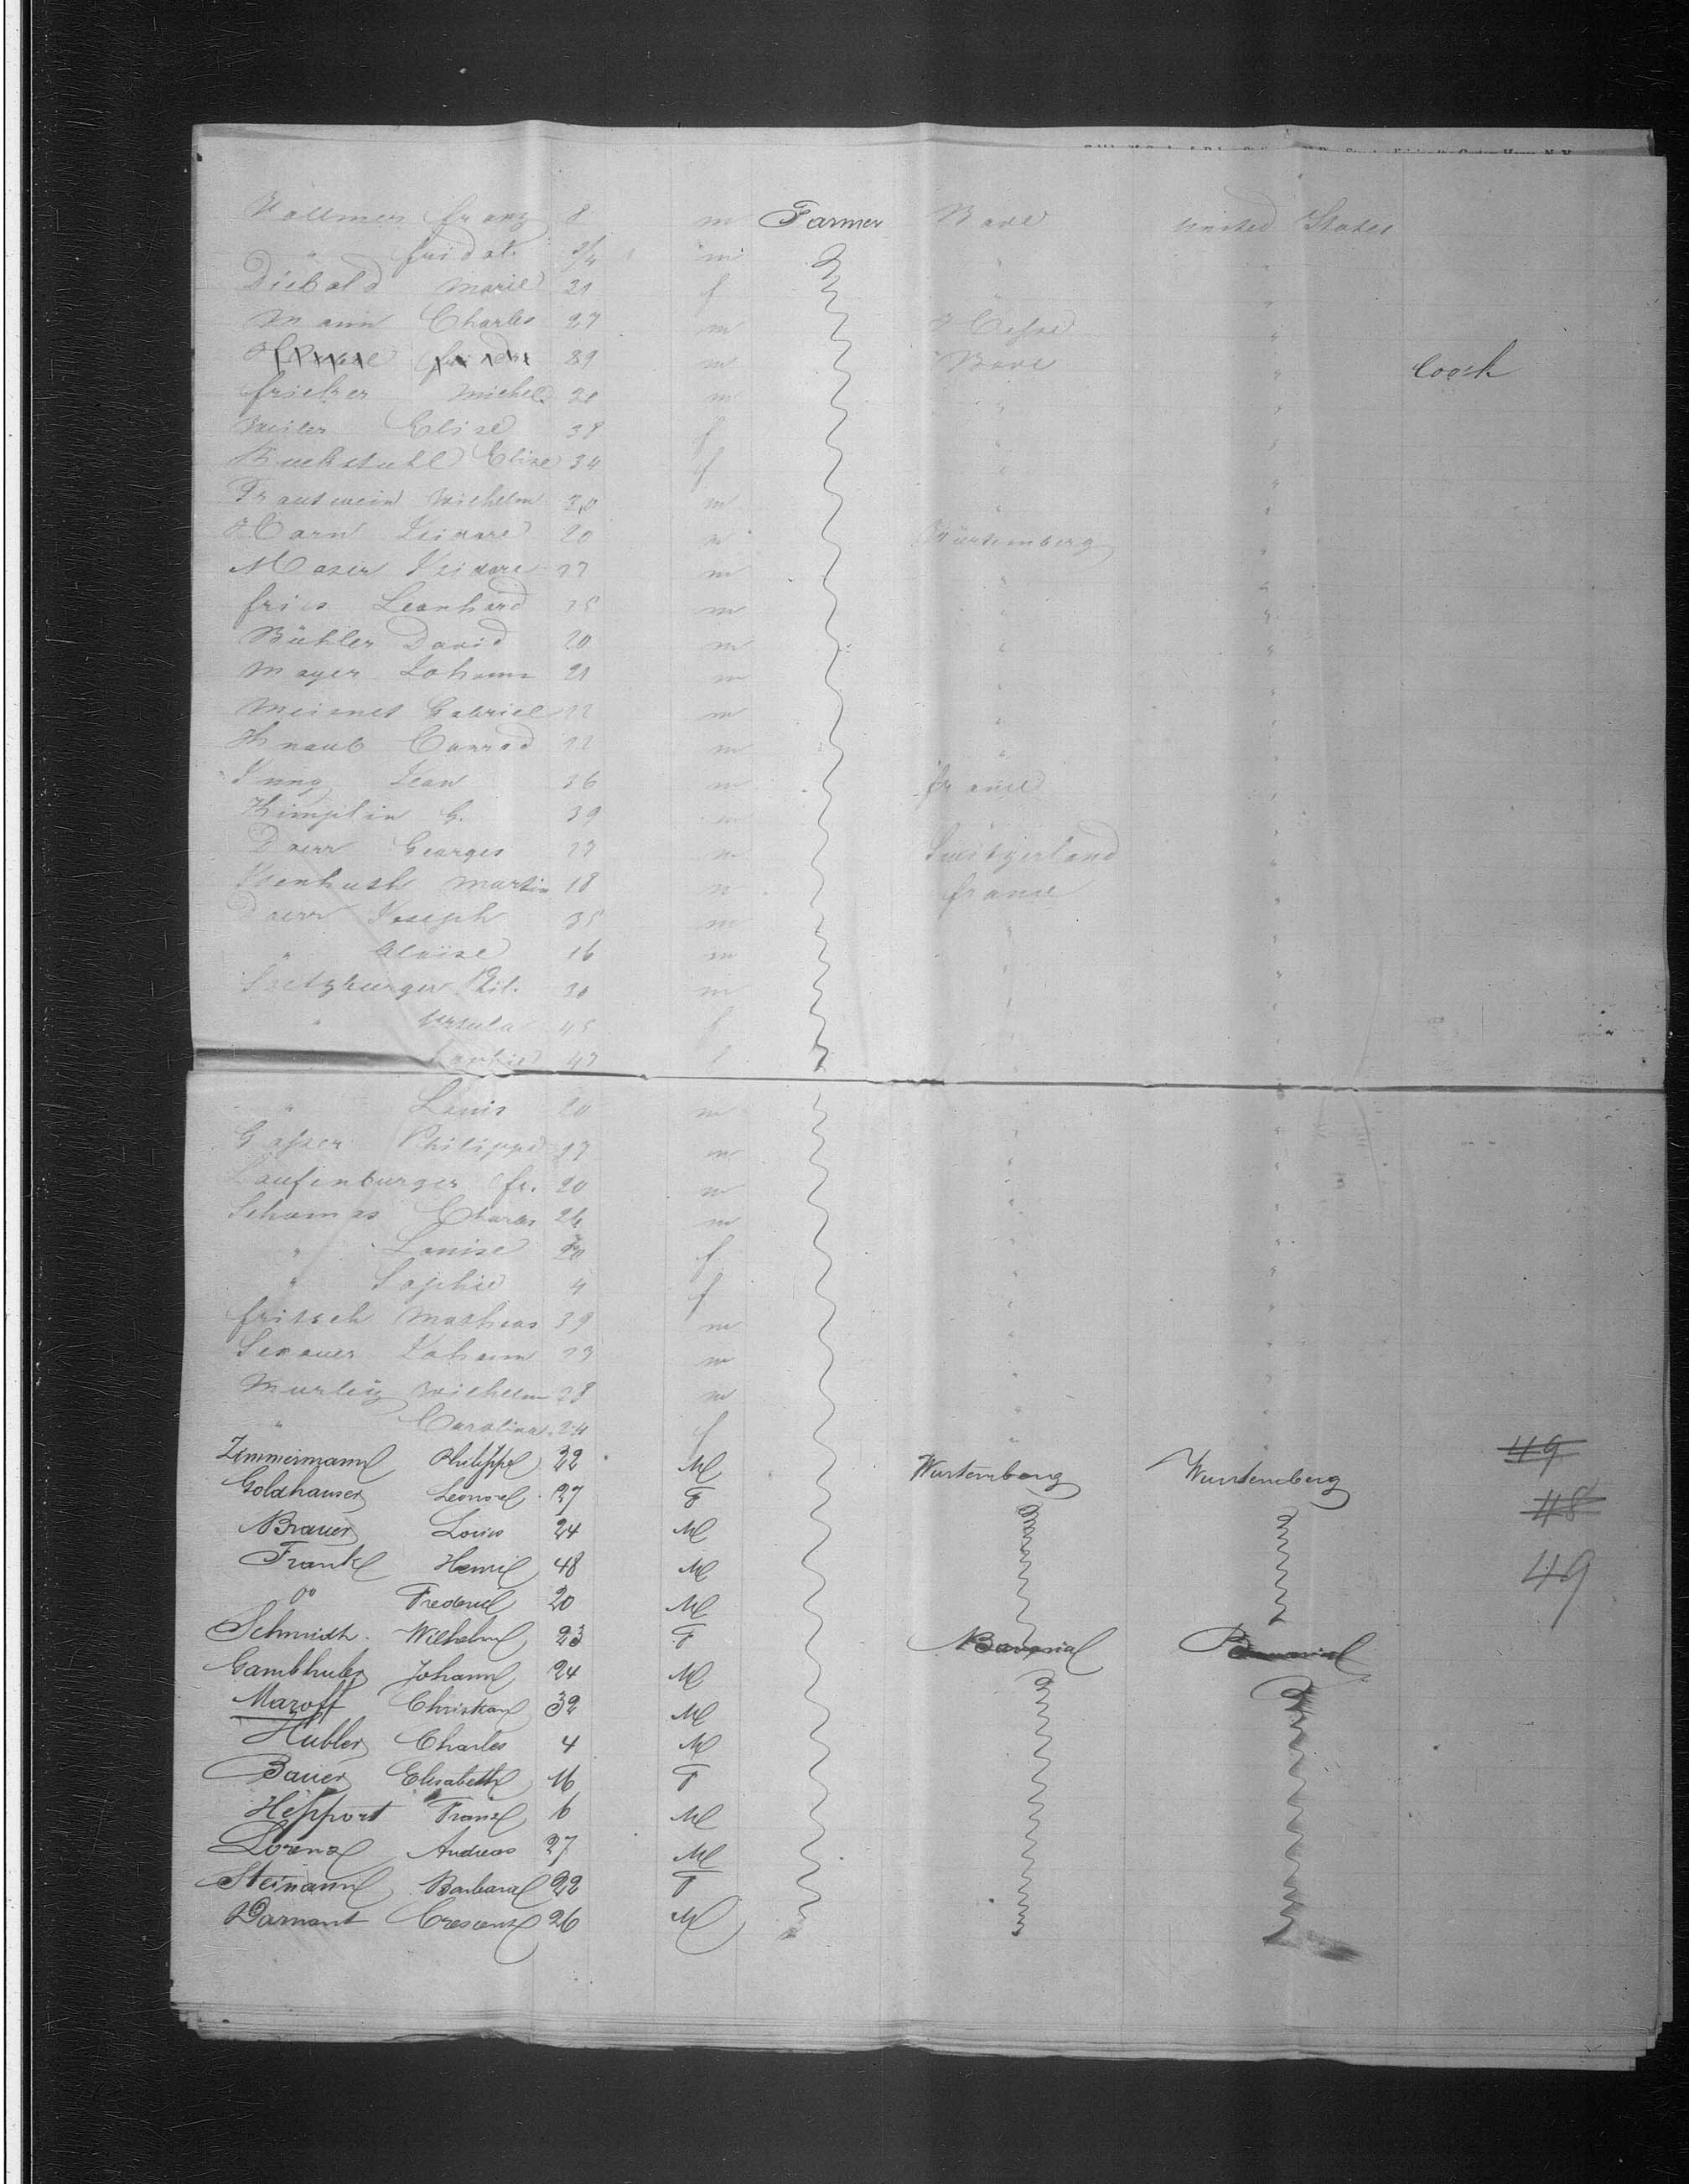 Vollmer Franz 8 m Farmer Bade United States
" Fridol. 3/4 m " "
Diebold Marie 21 f " "
Mann Charles 27 m Hesse "
89 m Bade " Cook
Frietzer Michel 21 m " "
Weiler Elise 38 f " "
Ruckstuhl Elise 34 f " "
Trautwein Wilhelm 30 m " "
Horn Isidore 20 m Würtemberg "
Moser Isidore 27 m " "
Fries Leonhard 25 m " "
Bühler David 20 m " "
Mayer Johann 21 m " "
Gabriel 22 m " "
Knaub Conrad 22 m " "
Jung Jean 36 m France "
Kimplin G. 39 m "
Doerr Georges 23 m Switzerland "
Martin 18 m France "
Doerr Joseph 35 m " "
" Aloise 16 m " "
Phil. 30 m " "
" Ursula 45 f " "
" Sophie 47 f " "
" Louis 20 m " "
Gasser Philippe 17 m " "
Laufenburger Fr. 20 m " "
Schomas Charles 26 m " "
" Louise 20 f " "
" Sophie 4 f " "
Fritsch Mathias 39 m " "
Johann 23 m " "
Wilhelm 28 m " "
" Carolina 24 f " "
Zimmermann Philippe 22 M Wurtemberg Wurtemberg 49
Goldhauser Leonore 27 F 48
Brauer Louis 24 M
Frank Henri 48 M 49
" Frederic 20 M
Schmidt Wilhelm 23 F Bavaria Bavaria
Gambhuber Johann 24 M
Maroff Christian 32 M
Hubler Charles 4 M
Bauer Elisabeth 16 F
Hepport Franz 6 M
Lorenz Andreas 27 M
Steinann Barbara 22 F
Darnant Crescenz 26 M